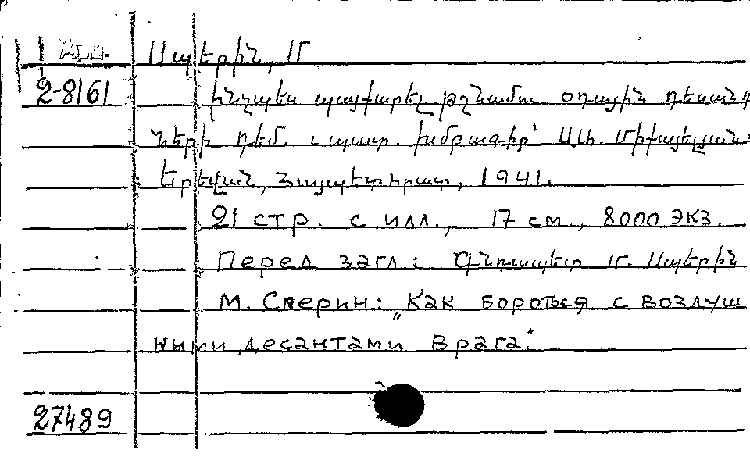 Սպերին, Մ
2-8161 Ինչպես պայքարել թշնամու օդային դեսանտ
ների դեմ. պատ. խմբագիր՝ Ալ. Միքայելյան
Երևան, Հայպետհրատ, 1941.
21 стр. с илл., 17 см., 8000 экз.
Перед загл.: Գնդապետ Մ. Սպերին
М. Сперин: „Как бороться с воздуш
ными десантами врага."
27489